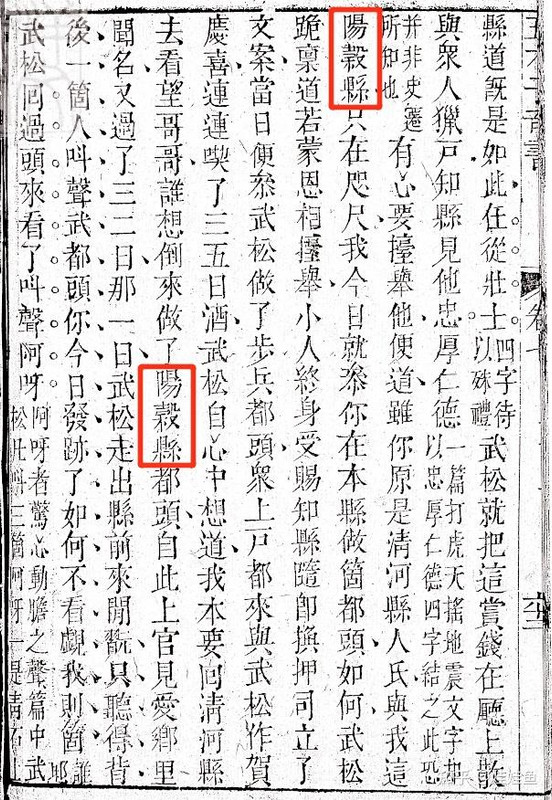 縣道既是如此任從壯士四字待以殊禮武松就把這賞錢在廳上散
與衆人獵戶知縣見他忠厚仁德一篇打虎天搖地震文字却以忠厚仁德四字結之此恐
并非史遷所知也有心要擡舉他便道雖你原是清河縣人氏與我這
陽榖縣只在咫尺我今日就叅你在本縣做箇都頭如何武松
跪禀道若蒙恩相擡舉小人終身受賜知縣隨即換押司立了
文案當日便叅武松做了步兵都頭衆上戶都來與武松作賀
慶喜連連喫了三五日酒武松自心中想道我本要囘清河縣
去看望哥哥誰想倒來做了陽榖縣都頭自此上官見愛鄉里
聞名又過了三二日那一日武松走出縣前來閒翫只聽得背
後一箇人叫聲武都頭你今日發跡了如何不看覷我則箇誰耶
武松囘過頭來看了叫聲阿呀阿呀者驚心動膽之聲篇中武